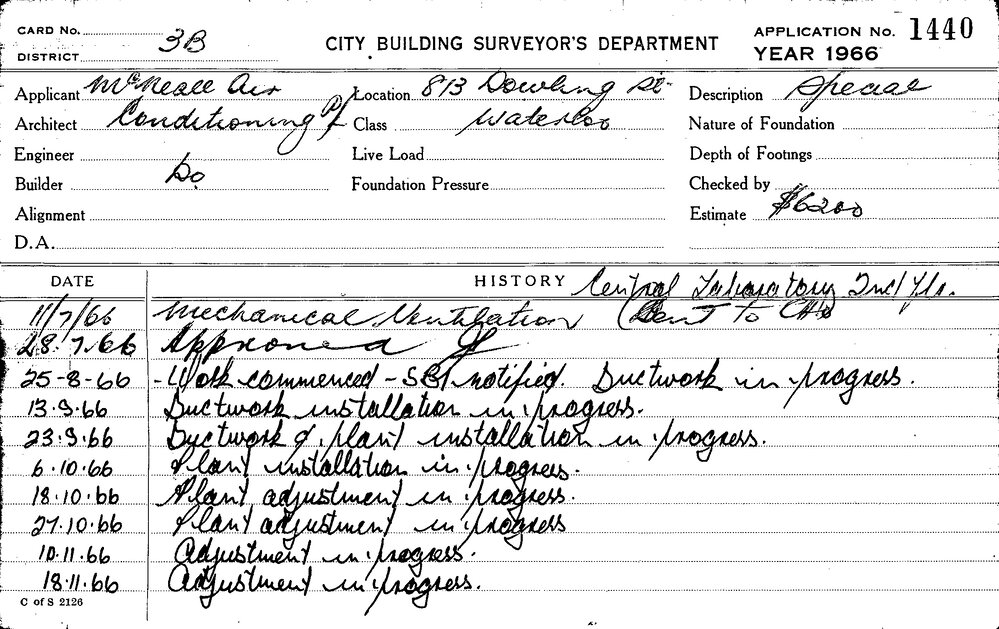 CARD No.
DISTRICT 3B
CITY BUILDING SURVEYOR'S DEPARTMENT
APPLICATION No. 1440
YEAR 1966
Applicant McNeall Air
Location 813 Dowling St.
Description Special
Architect Conditioning P/L
Class Waterloo
Nature of Foundation
Engineer
Live Load
Depth of Footings
Builder Do
Foundation Pressure
Checked by
Alignment
Estimate $6200
D.A.
DATE
HISTORY Central Laboratory 2nd Flr.
11/7/66 Mechanical Ventilation (Sent to CHO
28.7.66 Approved
25-8-66 - Work commenced - SBI notified. Ductwork in progress.
13.9.66 Ductwork installation in progress.
23.9.66 Ductwork & plant installation in progress.
6.10.66 Plant installation in progress.
18.10.66 Plant adjustment in progress.
27.10.66 Plant adjustment in progress
10.11.66 Adjustment in progress.
18.11.66 Adjustment in progress.
C of S 2126